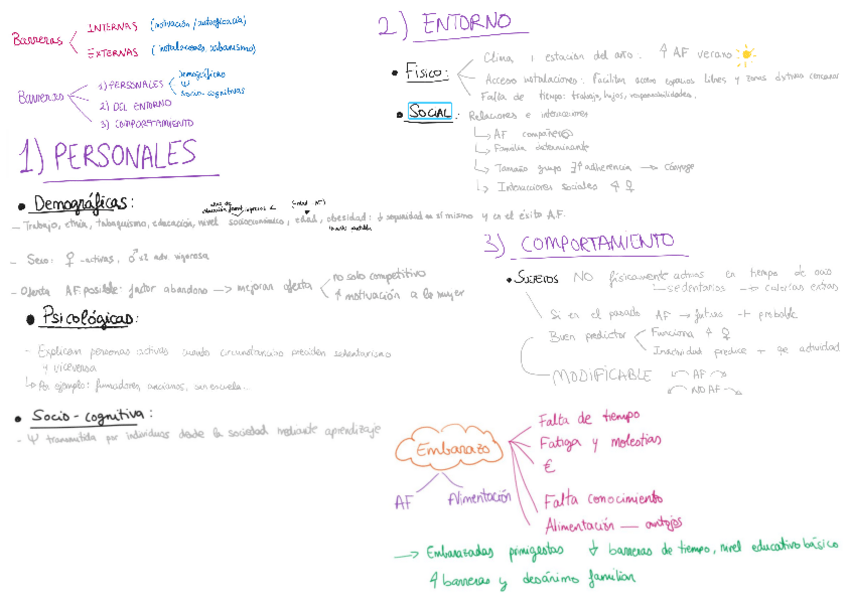 Barreras
INTERNAS (motivación / autoeficacia)
EXTERNAS (instalaciones, urbanismo)
Barreras
1) PERSONALES
demográficas
Ψ
socio-cognitivas
2) DEL ENTORNO
3) COMPORTAMIENTO
1) PERSONALES
• Demográficas:
- Trabajo, etnia, tabaquismo, educación, nivel socioeconómico, edad, obesidad: ↓ seguridad en sí mismo y en el éxito AF.
- Sexo: ♀ -activas, ♂ x2 adv. vigorosa
- Oferta AF posible: factor abandono → mejoran oferta
no solo competitivo
↑ motivación a la mujer
• Psicológicas:
- Explican personas activas cuando circunstancias presiden sedentarismo
y viceversa
↳ Por ejemplo: fumadores, ancianos, sin escuela...
• Socio-cognitiva:
- Ψ transmitida por individuos desde la sociedad mediante aprendizaje
2) ENTORNO
• Físico:
Clima y estación del año. ↑ AF verano
Acceso instalaciones: Facilitar acceso espacios libres y zonas
Falta de tiempo: trabajo, hijos, responsabilidades.
• SOCIAL: Relaciones e interacciones
↳ AF compañero
↳ Familia determinante
↳ Tamaño grupo ∃ ↑ adherencia → Cónyuge
↳ Interacciones sociales ↑ ♀
3) COMPORTAMIENTO
• SUJETOS NO físicamente activos en tiempo de ocio
↳ sedentarios → calorías extras
Si en el pasado AF → futuro + probable
Buen predictor
Funciona ↑ ♀
Inactividad produce + que actividad
MODIFICABLE
AF
NO AF
Embarazo
AF
Alimentación
Falta de tiempo
Fatiga y molestias
€
Falta conocimiento
Alimentación — antojos
→ Embarazadas primigestas ↓ barreras de tiempo, nivel educativo básico
↑ barreras y desánimo familiar